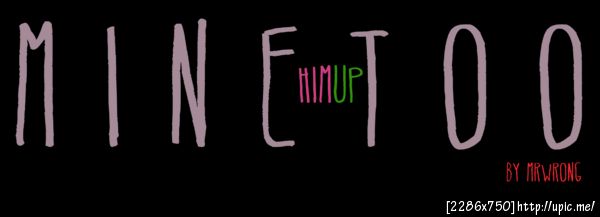 MINE TOO
HIMUP
BY MRWRONG
[2286x750]http://upic.me/